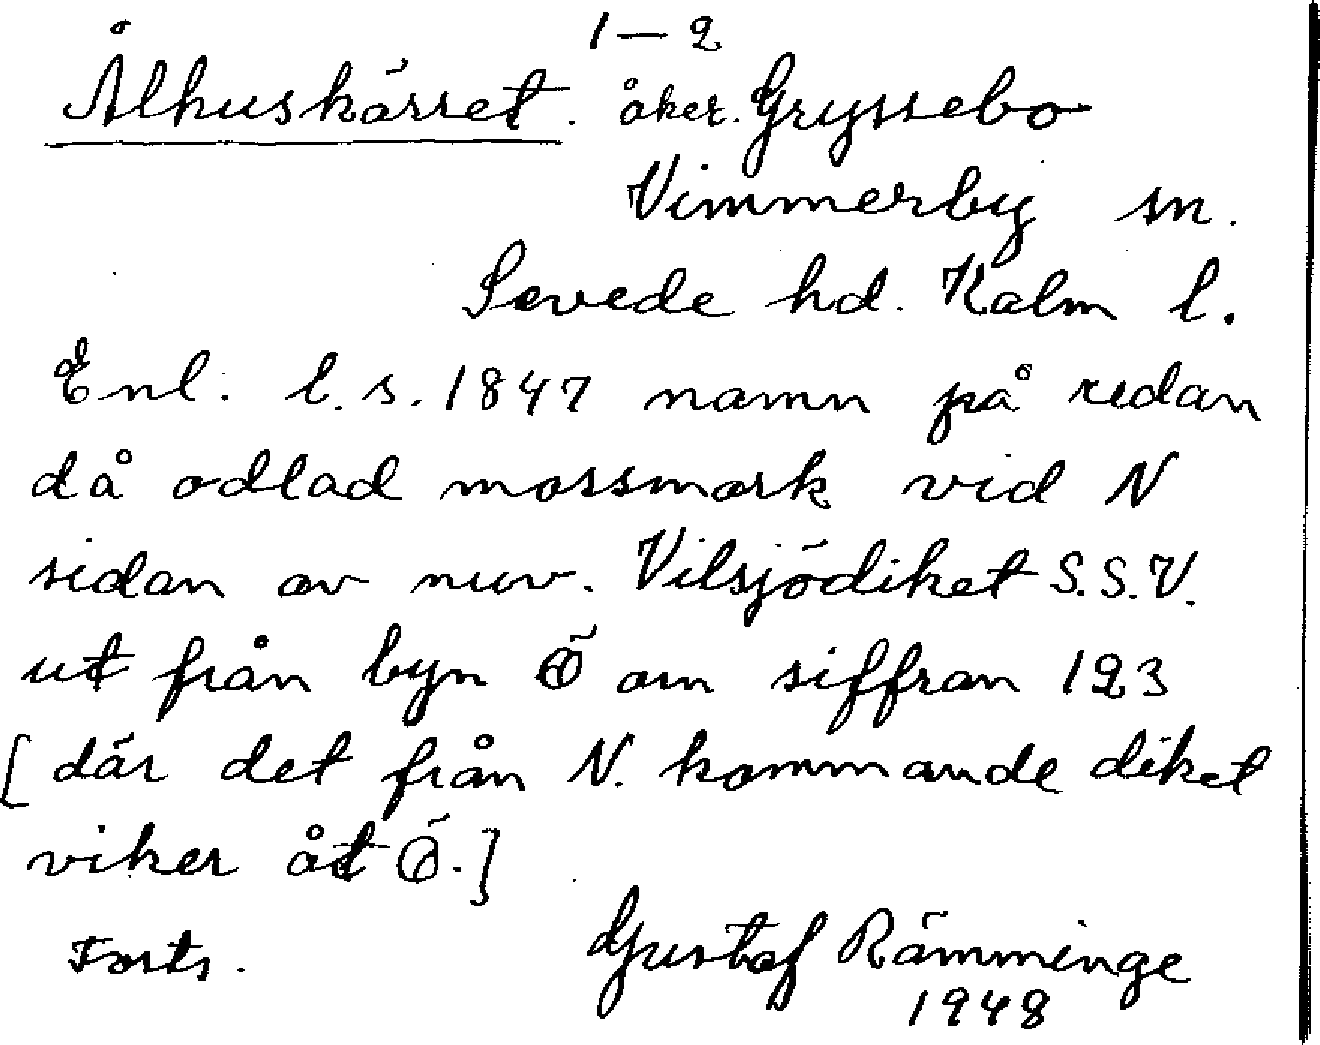 1–2
Ålhuskärret. åker. Gryssebo
Vimmerby sn.
Sevede hd. Kalm l.
Enl. l.s. 1847 namn på redan
då odlad mossmark vid N
sidan av nuv. Vilsjödiket S.S.V.
ut från byn Ö om siffran 123
[där det från N. kommande diket
viker åt Ö.]
Forts. Gustaf Rämminge
1948